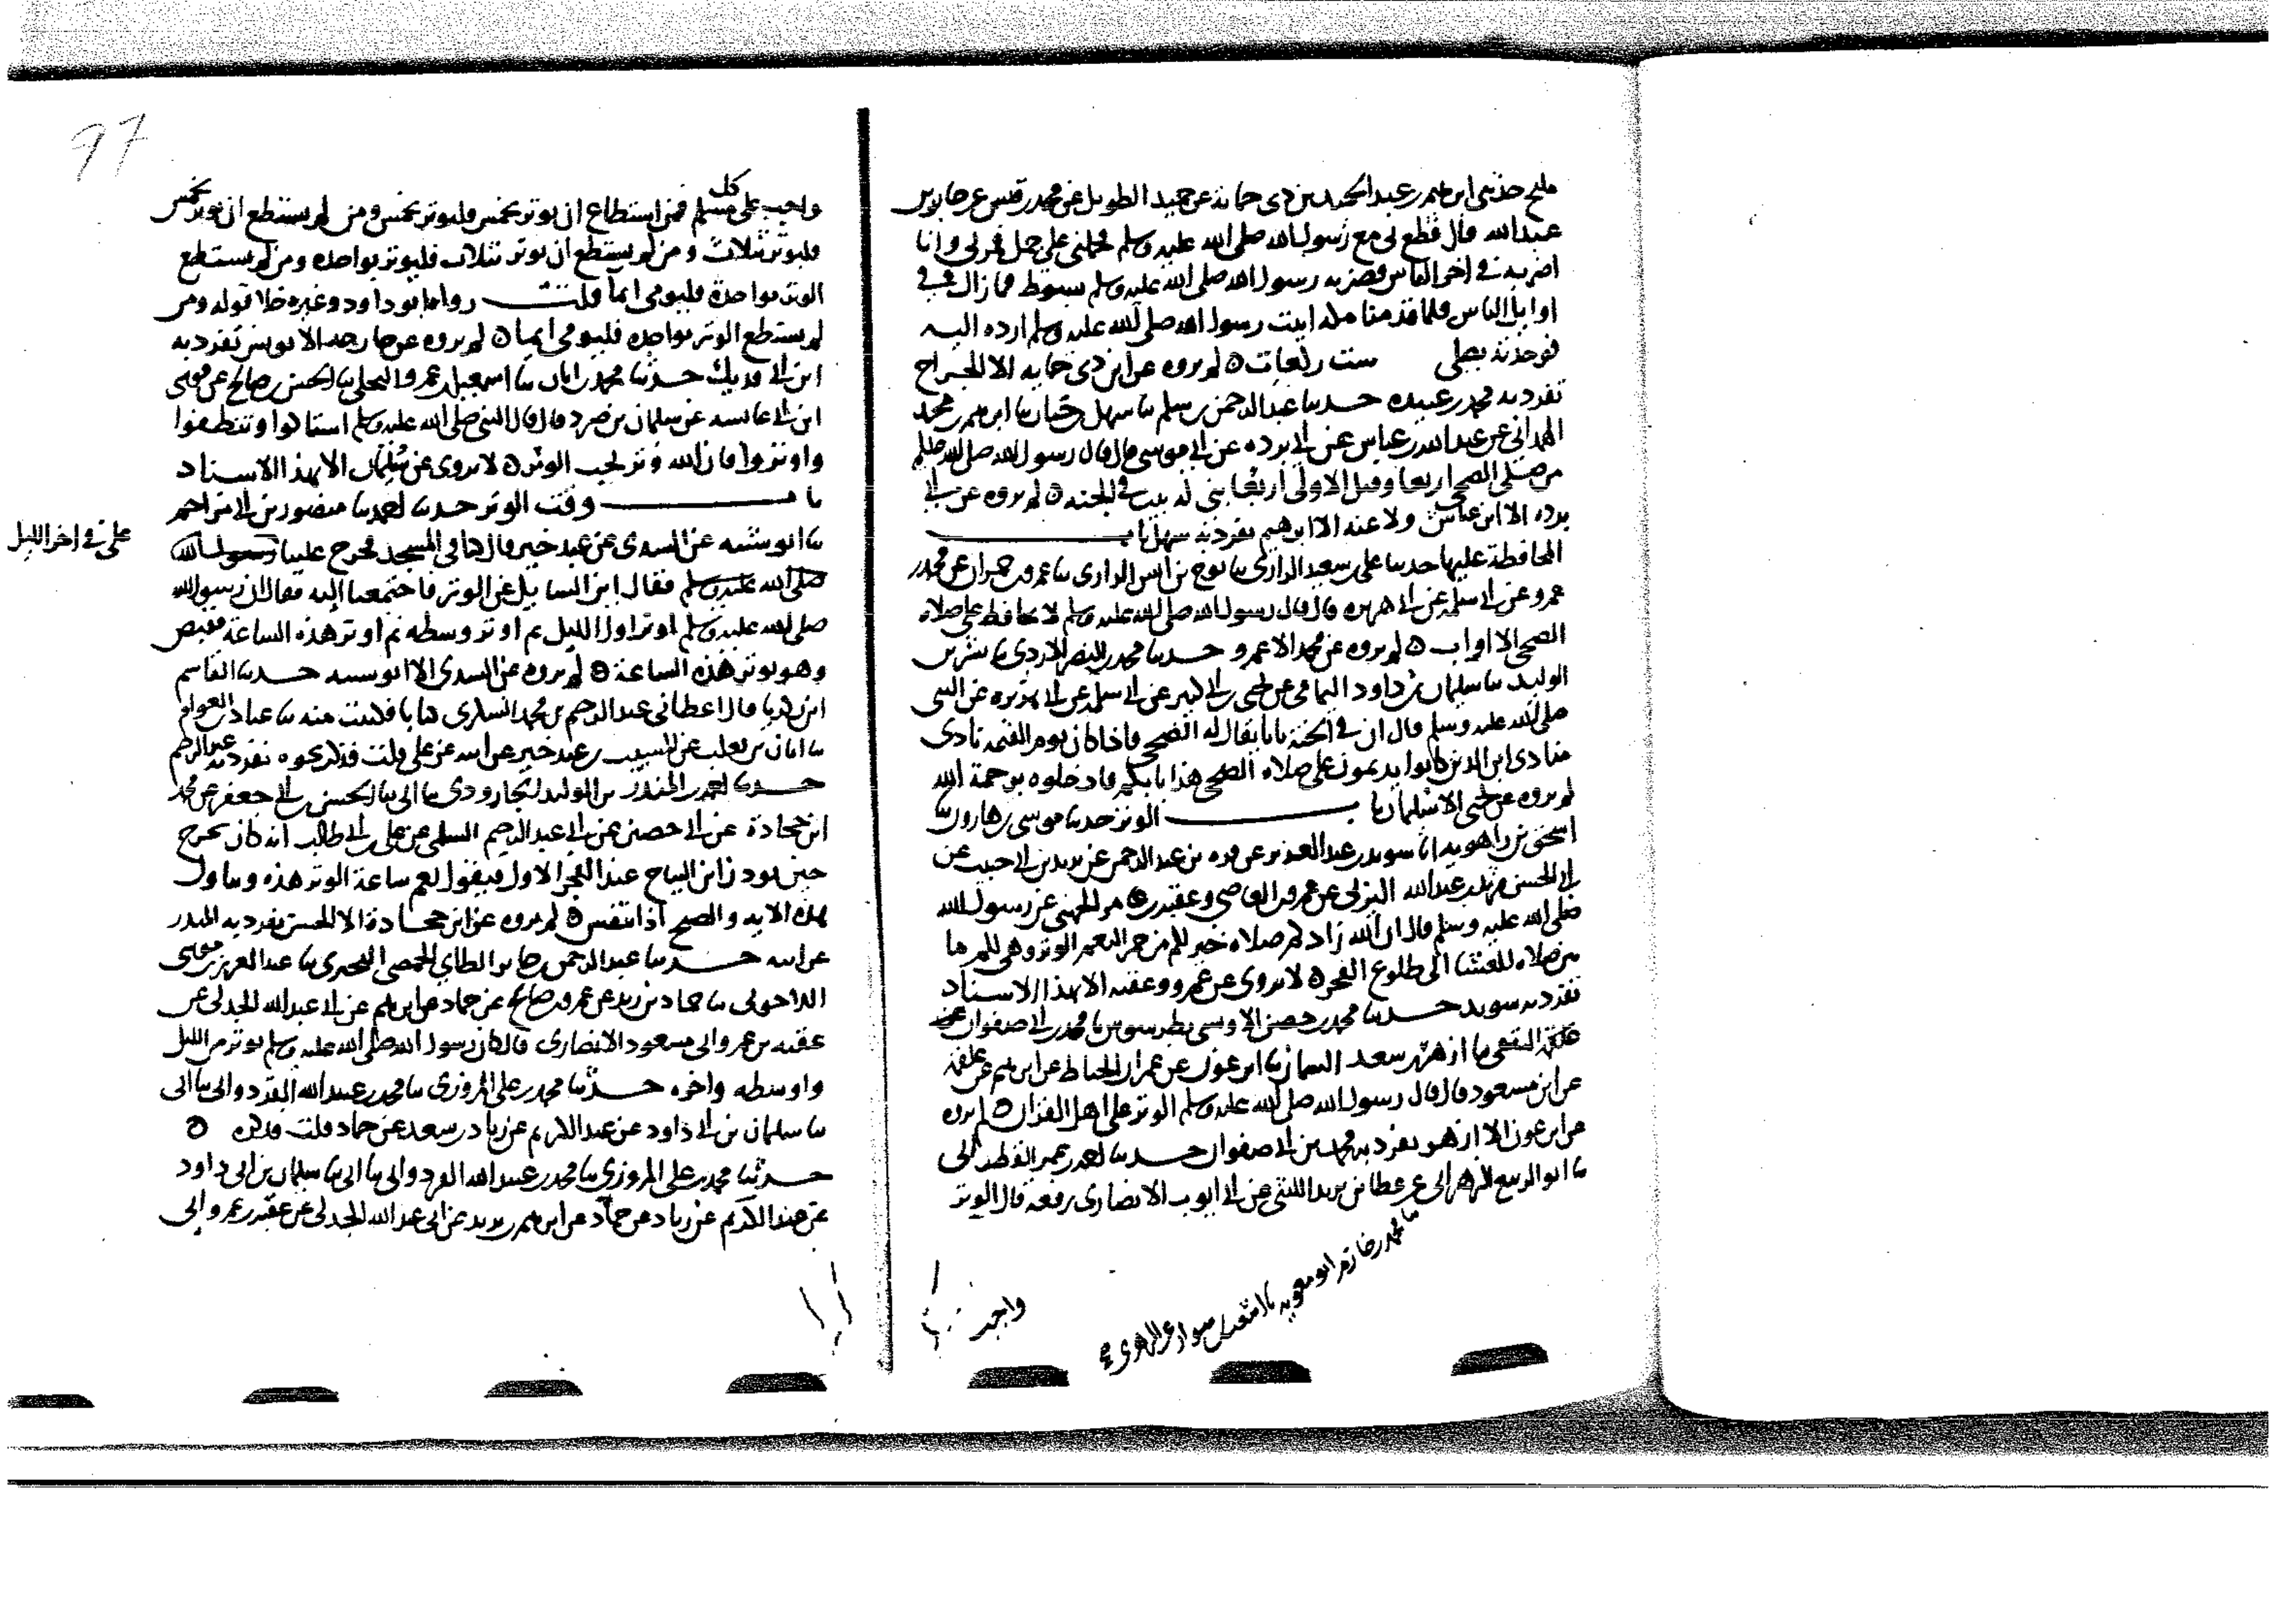 مليح حدثني ابراهيم بن عبد الحميد بن ذي حماية عن حميد الطويل عن محمد بن قيس عن جابر بن
عبد الله قال قطع لي مع رسول الله صلى الله عليه وسلم فحملني على جمل فجرلي وانا
اضربه في اخر الناس فضربه رسول الله صلى الله عليه وسلم بسوط فما زال في
اوايل الناس فلما قدمنا مكة اتيت رسول الله صلى الله عليه وسلم ارده اليه
فوجدته يصلي ست ركعات ه لم يروه عن ابن ذي حماية الا الجراح
تفرد به محمد بن عبيده حدثنا عبد الرحمن بن سلم ثنا سهل بن عثمان ثنا ابراهيم بن محمد
الهمداني عن عبد الله بن عياش عن ابي برده عن ابي موسى قال قال رسول الله صلى الله عليه وسلم
من صلى الضحى اربعا وقبل الاولى اربعا بني له بيت في الجنه ه لم يروه عن ابي
برده الا ابن عياش ولا عنه الا ابرهيم تفرد به سهل باب
المحافظة عليها حدثنا علي بن سعيد الرازي ثنا نوح بن انس الرازي ثنا عمرو بن حمران عن محمد بن
عمرو عن ابي سلمة عن ابي هريره قال قال رسول الله صلى الله عليه وسلم لا يحافظ على صلاة
الضحى الا اواب ه لم يروه عن محمد الا عمرو حدثنا محمد بن النضر الازدي ثنا بشر بن
الوليد ثنا سليمان بن داود اليمامي عن يحيى بن ابي كثير عن ابي سلمة عن ابي هريره عن النبي
صلى الله عليه وسلم قال ان في الجنة بابا يقال له الضحى فاذا كان يوم القيمة نادى
منادى اين الذين كانوا يديمون على صلاة الضحى هذا بابكم فادخلوه برحمة الله
لم يروه عن يحيى الا سليمان باب الوتر حدثنا موسى بن هارون ثنا
اسحق بن راهويه انا سويد بن عبد العزيز عن قره بن عبد الرحمن عن يزيد بن ابي حبيب عن
ابي الخير مرثد بن عبد الله اليزني عن عمرو بن العاصي وعقبة بن عامر الجهني عن رسول الله
صلى الله عليه وسلم قال ان الله زادكم صلاة خير لكم من حمر النعم الوتر وهي لكم ما
بين صلاة العشا الى طلوع الفجر ه لا يروى عن عمرو وعقبه الا بهذا الاسناد
تفرد به سويد حدثنا محمد بن حصن الاوسي بطرسوس ثنا محمد بن ابي صفوان
الثقفي ثنا ازهر بن سعد السمان ثنا ابن عون عن عمران الخياط عن ابراهيم عن علقمه
عن ابن مسعود قال قال رسول الله صلى الله عليه وسلم الوتر على اهل القران ه لم يروه
عن ابن عون الا ازهر تفرد به محمد بن ابي صفوان حدثنا احمد بن عمر القطراني
ثنا ابو الربيع الزهراني عن عطا بن يزيد الليثي عن ابي ايوب الانصاري رفعه قال الوتر
ثنا محمد بن خازم ابو معويه ثنا اشعث بن سوار عن الزهري صح
واجب
97
واجب على كل مسلم فمن استطاع ان يوتر بخمس فليوتر بخمس ومن لم يستطع ان يوتر بخمس
فليوتر بثلاث ومن لم يستطع ان يوتر بثلاث فليوتر بواحده ومن لم يستطع
الوتر بواحدة فليومي ايما قلت رواه ابو داود وغيره خلا قوله ومن
لم يستطع الوتر بواحده فليومي ايما ه لم يروه عن
ابن ابي فديك حدثنا محمد بن ابان ثنا اسمعيل بن عمرو البجلي ثنا الحسن بن صالح عن موسى
ابن ابي عايشه عن سليمان بن صرد قال قال النبي صلى الله عليه وسلم استاكوا وتنظفوا
واوتروا فان الله وتر يحب الوتر ه لا يروى عن سليمان الا بهذا الاسناد
باب وقت الوتر حدثنا احمد ثنا منصور بن ابي مزاحم
ثنا ابو شيبه عن السدي عن عبد خير قال كنا في المسجد فخرج علينا رسول الله
علي في اخر الليل
صلى الله عليه وسلم فقال اين السايل عن الوتر فاجتمعنا اليه فقال ان رسول الله
صلى الله عليه وسلم اوتر اول الليل ثم اوتر وسطه ثم اوتر هذه الساعة فقبض
وهو يوتر هذه الساعة ه لم يروه عن السدي الا ابو شيبه حدثنا القاسم
ابن زكريا قال اعطاني عبد الرحيم بن محمد السكري كتابا فكتبت منه ثنا عباد بن العوام
ثنا ابان بن تغلب عن المسيب بن عبد خير عن ابيه عن علي قلت فذكر نحوه تفرد به عبد الرحيم
حدثنا احمد بن المنذر بن الوليد الجارودي ثنا ابي ثنا الحسن بن ابي جعفر عن محمد
ابن جحادة عن ابي حصين عن ابي عبد الرحيم السلمي عن علي بن ابي طالب انه كان يخرج
حين يوذن ابن التياح عند الفجر الاول فيقول نعم ساعة الوتر هذه ويتاول
هذه الايه والصبح اذا تنفس ه لم يروه عن ابن جحادة الا الحسن تفرد به المنذر
عن ابيه حدثنا عبد الرحمن بن جابر الطاي الحمصي البحتري ثنا عبد العزيز بن موسى
اللاحوني ثنا حماد بن زيد عن عمرو بن صالح عن حماد عن ابراهيم عن ابي عبد الله الجدلي عن
عقبه بن عمرو ابي مسعود الانصاري قال كان رسول الله صلى الله عليه وسلم يوتر من الليل
واوسطه واخره حدثنا محمد بن علي المروزي ثنا محمد بن عبد الله القردواني ثنا ابي
ثنا سليمان بن ابي داود عن عبد الكريم عن زياد بن سعد عن حماد قلت فذكره ه
حدثنا محمد بن علي المروزي ثنا محمد بن عبيد الله القردواني ثنا ابي ثنا سليمان بن ابي داود
عن عبد الكريم عن زياد عن حماد عن ابراهيم بن يزيد عن ابي عبد الله الجدلي عن عقبة بن عمرو ابي